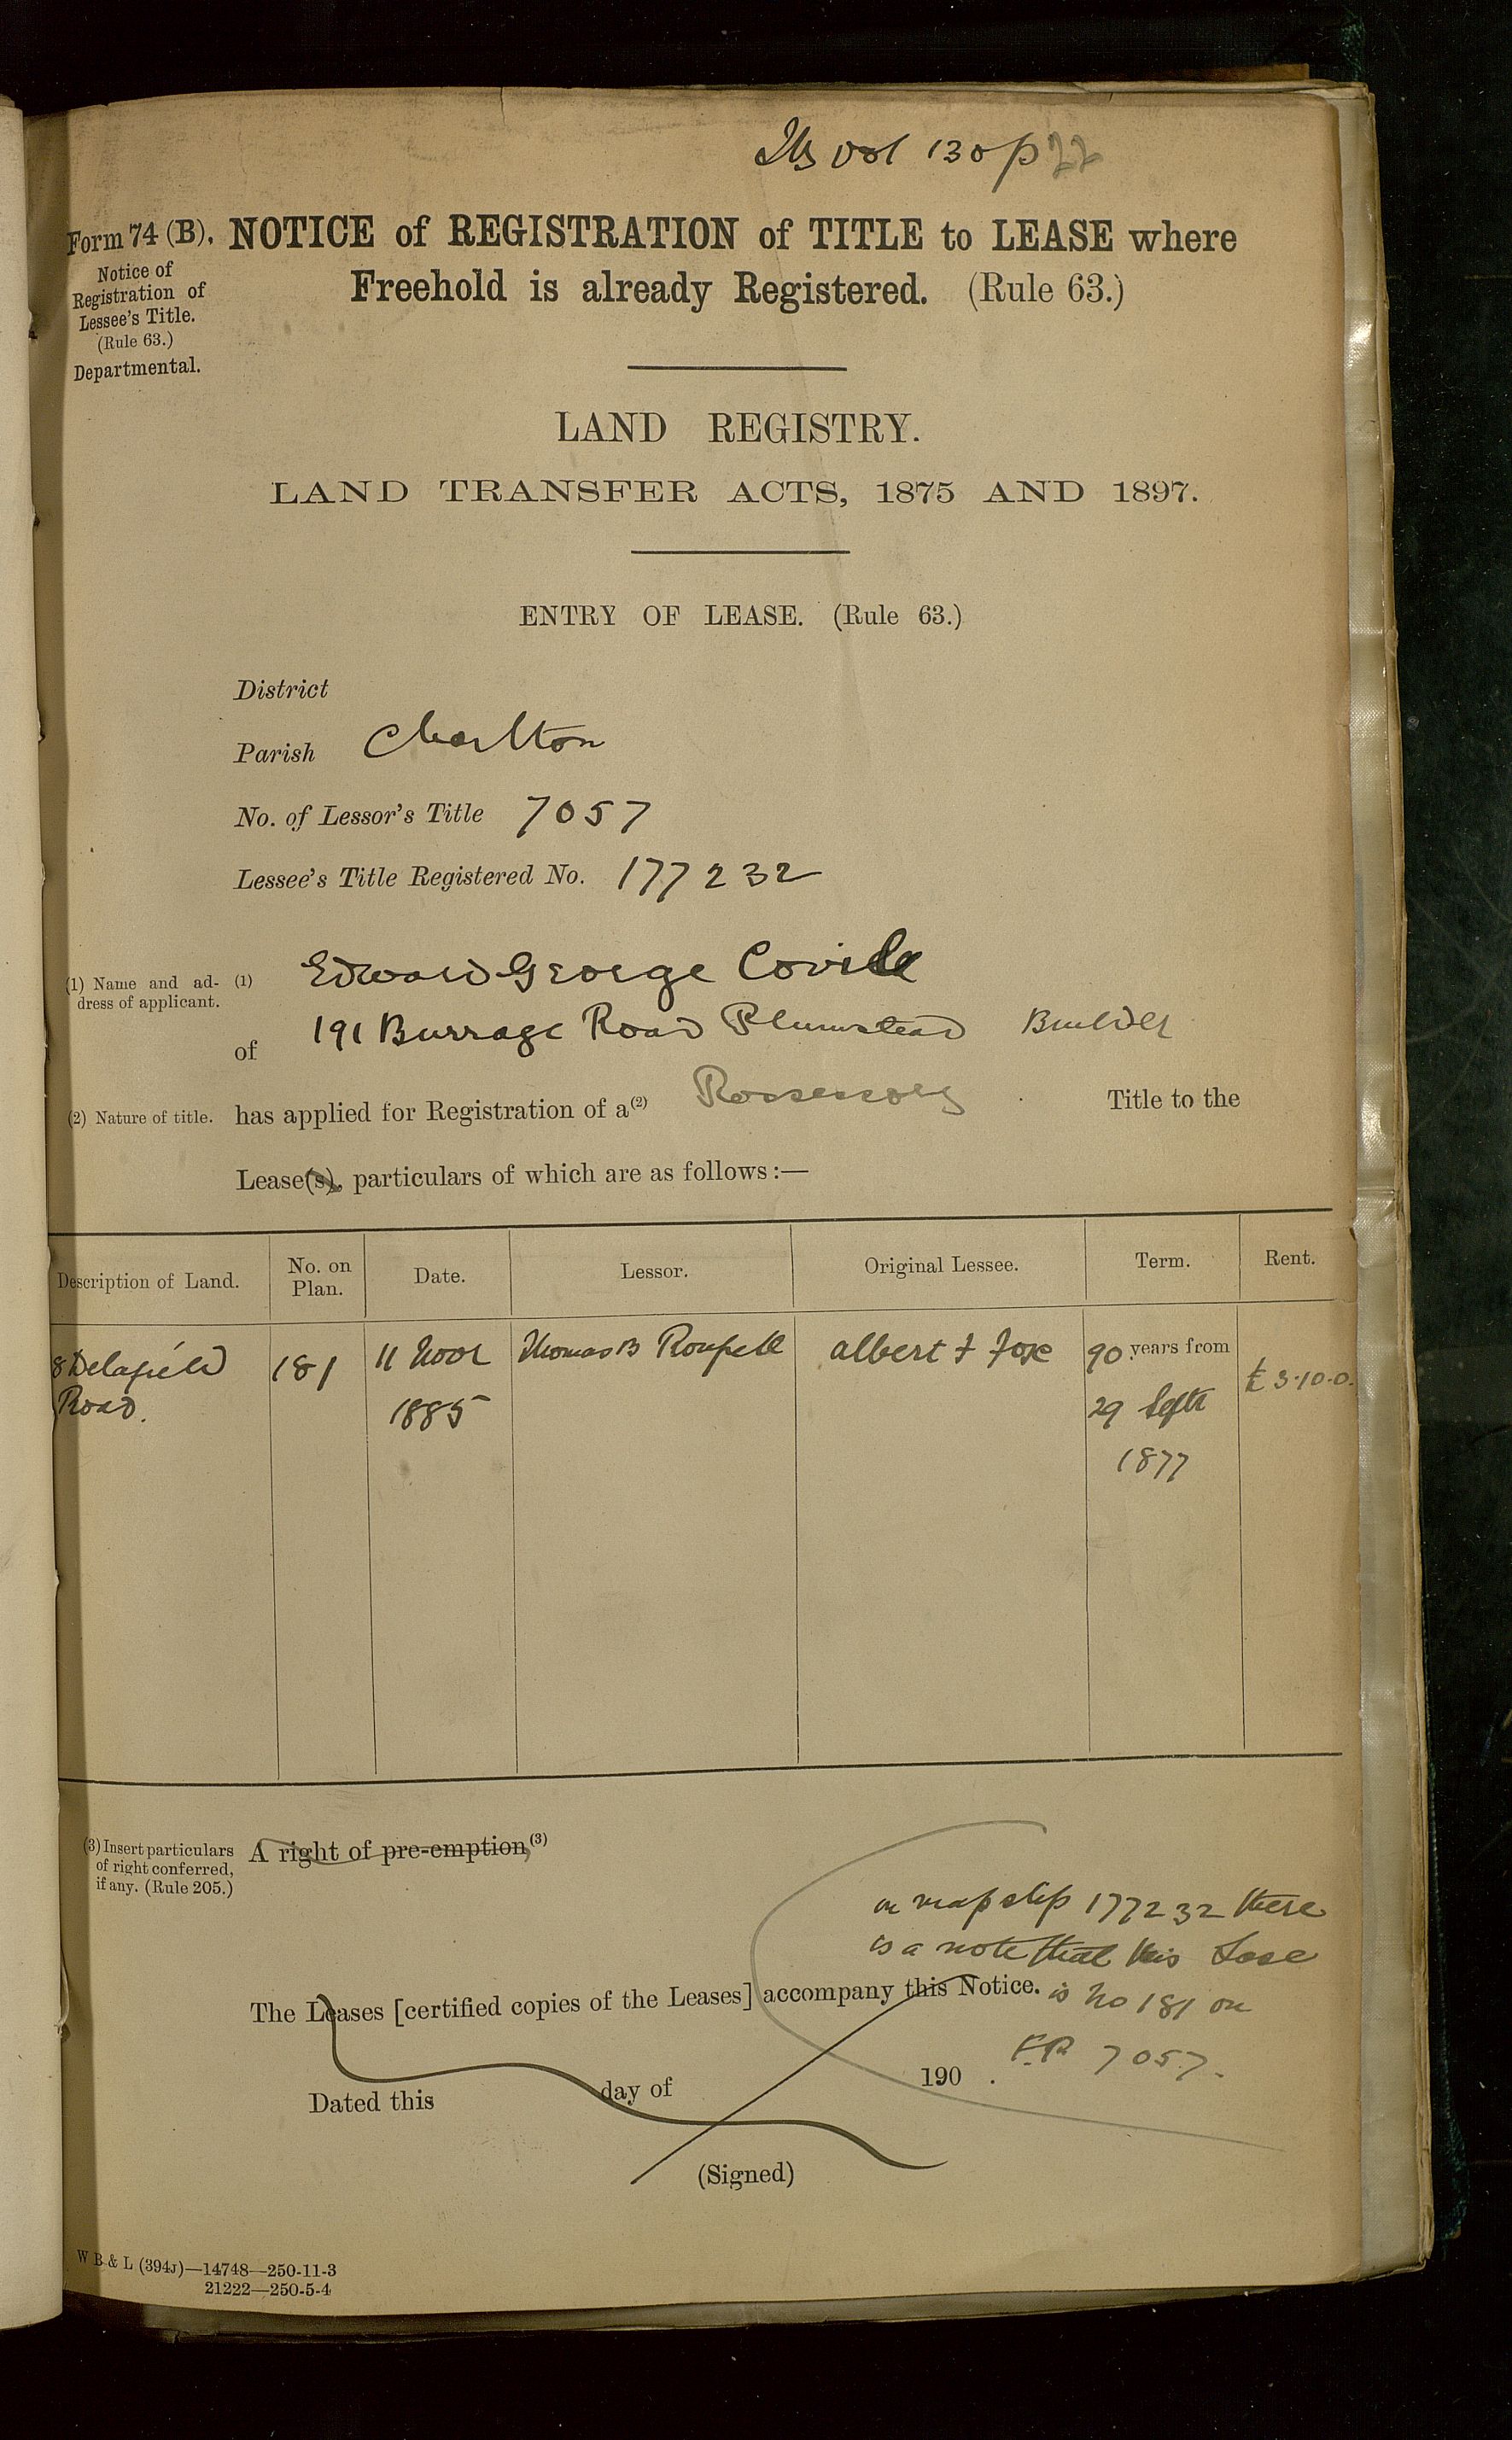 vol 130 p 22
Form 74 (B). NOTICE of REGISTRATION of TITLE to LEASE where
Freehold is already Registered. (Rule 63.)
Notice of
Registration of
Lessee's Title.
(Rule 63.)
Departmental.
LAND REGISTRY.
LAND TRANSFER ACTS, 1875 AND 1897.
ENTRY OF LEASE. (Rule 63.)
District
Parish Charlton
No. of Lessor's Title 7057
Lessee's Title Registered No. 177232
(1) Name and ad-
dress of applicant.
(1) Edward George Covill
of 191 Burrage Road Plumstead Builder
(2) Nature of title. has applied for Registration of a(2) Possessory Title to the
Lease(s), particulars of which are as follows:—
Description of Land. No. on Plan. Date. Lessor. Original Lessee. Term. Rent.
8 Delafield 181 11 Novr Thomas B Roupell Albert F Fox 90 years from £3.10.0.
Road. 1885 29 Septr
1877
(3) Insert particulars
of right conferred,
if any. (Rule 205.)
A right of pre-emption,(3)
on map slip 177232 there
is a note that this Lease
is No 181 on
F.P. 7057.
The Leases [certified copies of the Leases] accompany this Notice.
Dated this day of 190 .
(Signed)
W B & L (394J)—14748—250-11-3
21222—250-5-4